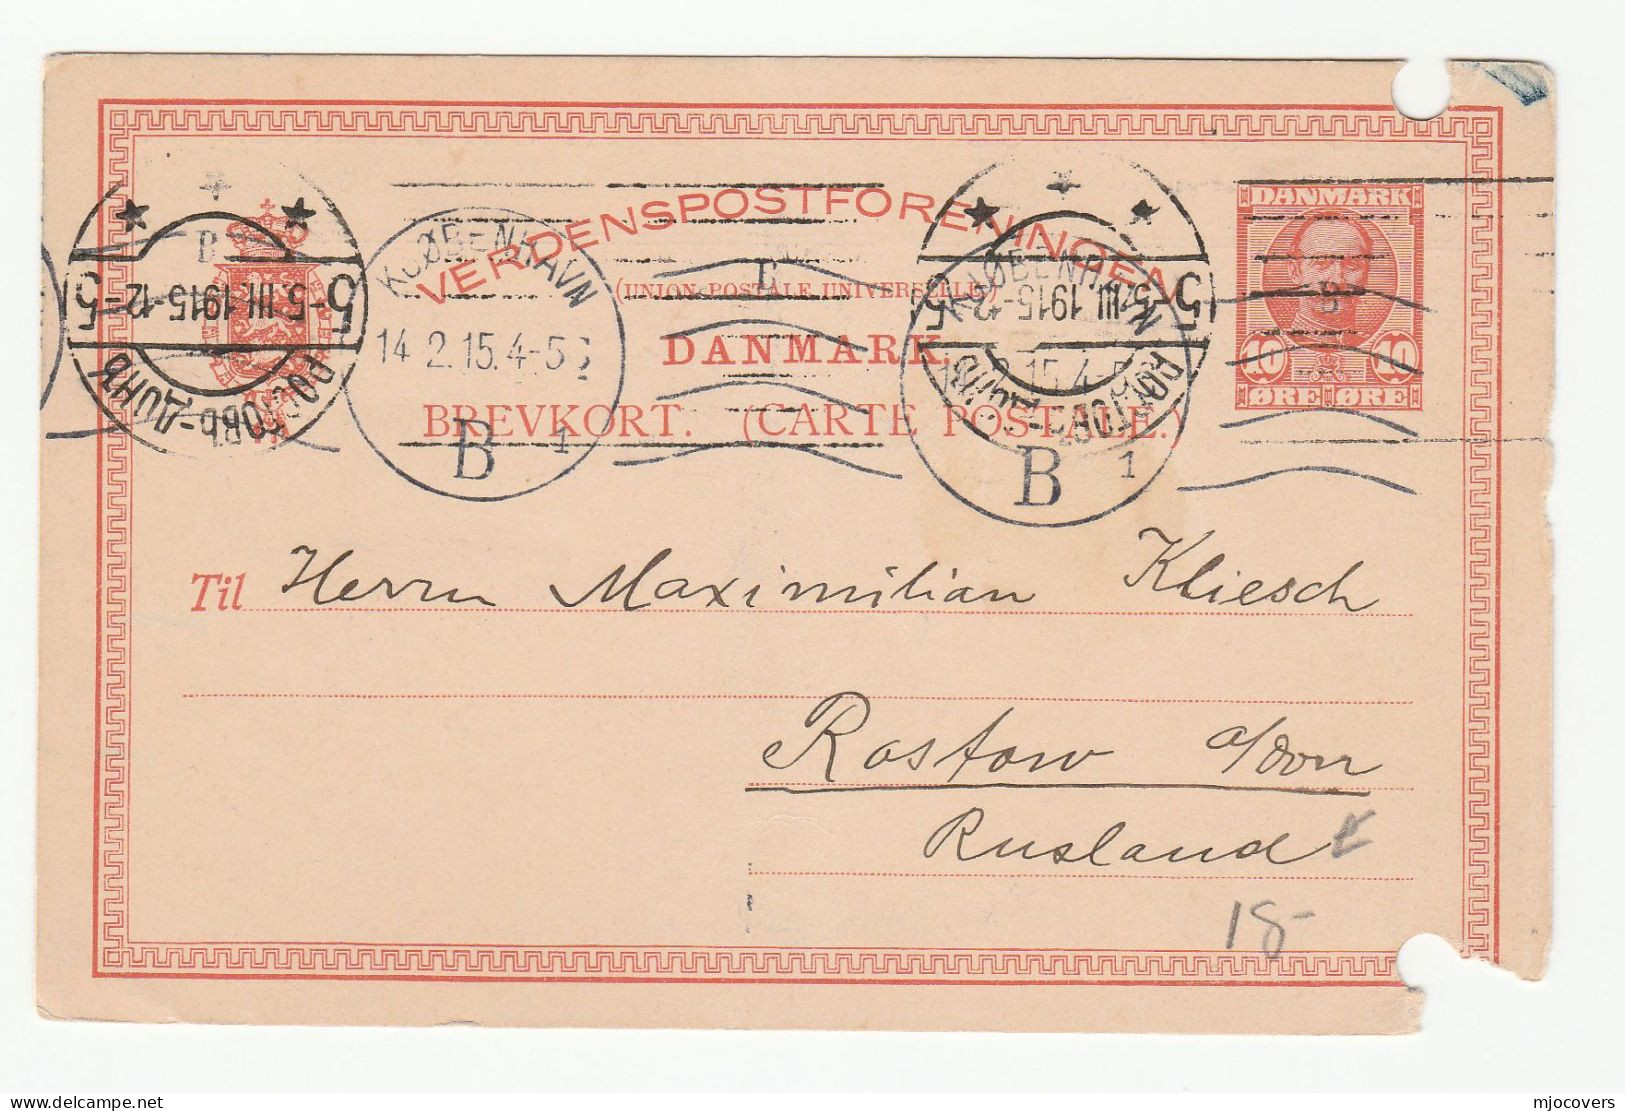 VERDENSPOSTFORENINGEN
(UNION POSTALE UNIVERSELLE)
DANMARK.
BREVKORT. (CARTE POSTALE.)
DANMARK
10 10
ØRE ØRE
KJØBENHAVN
14.2.15.4-5
B 1
KJØBENHAVN
15.4-5
B 1
B
B
B
5 5
5.III.1915-12
РОСТОВЪ-ДОНЪ
5 5
5.III.1915-12
РОСТОВЪ-ДОНЪ
Til Herrn Maximilian Kliesch
Rostow a/Don
Rusland
18-
mjocovers